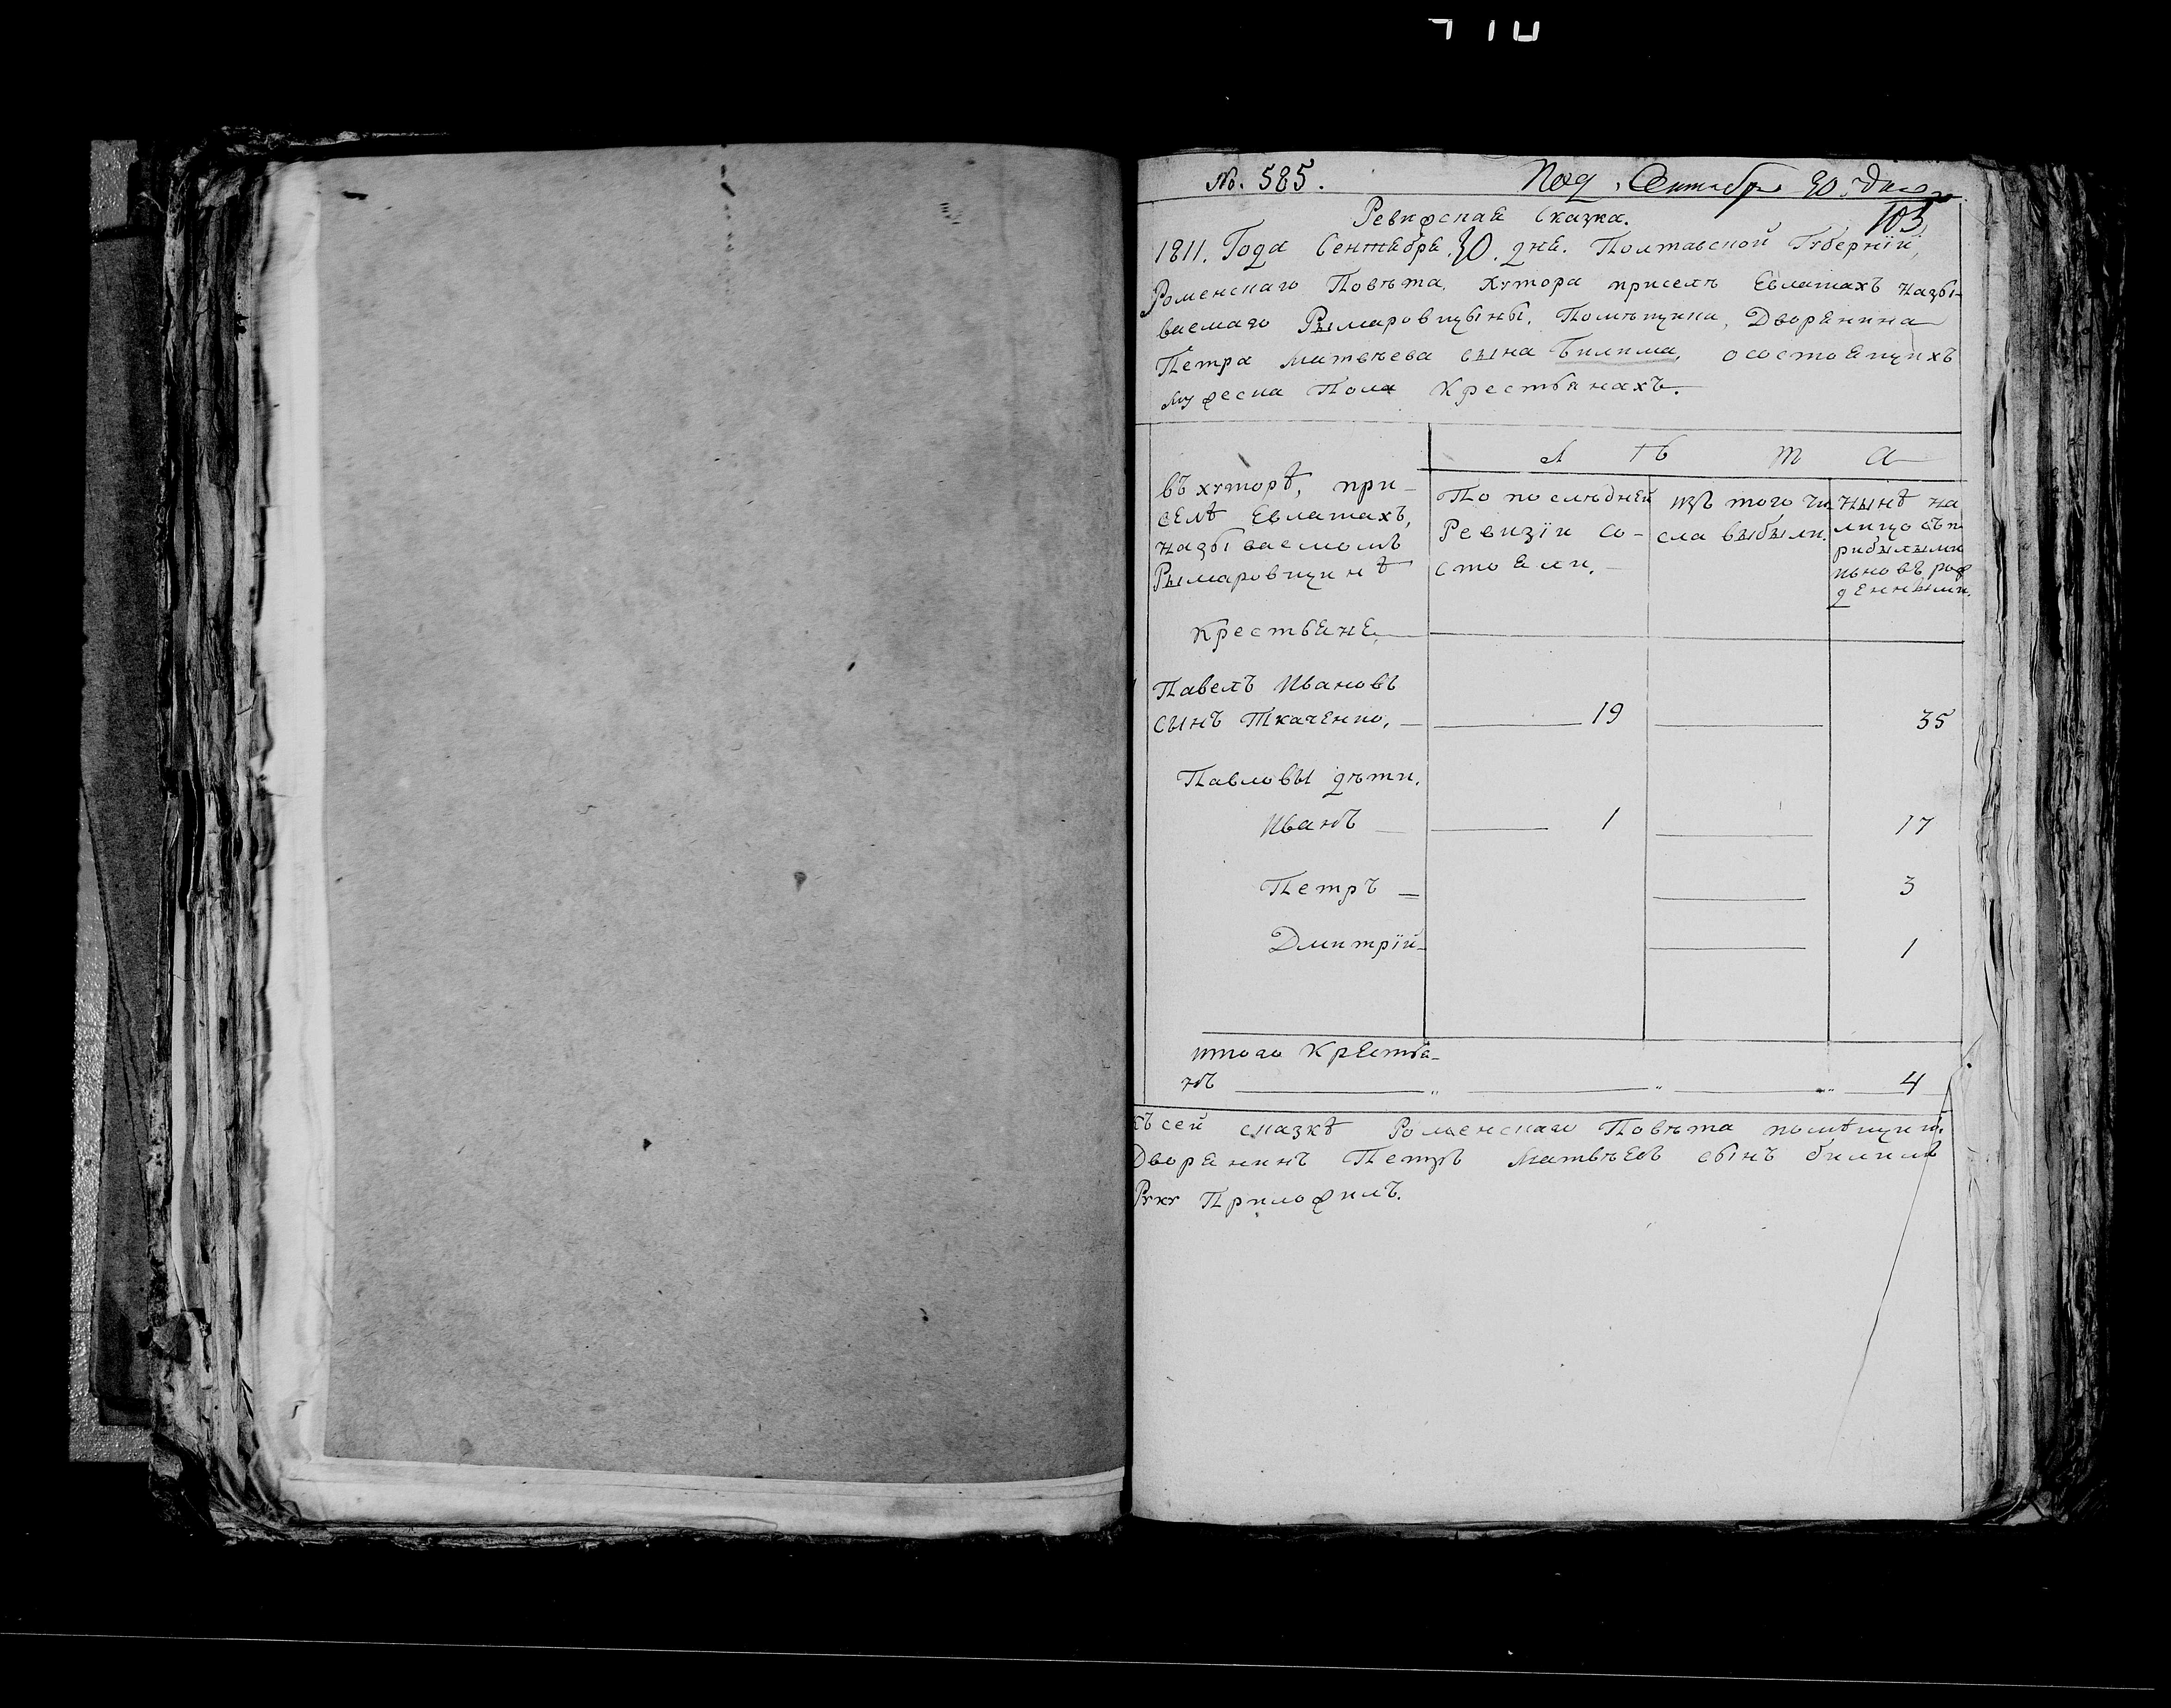 №. 585. Под. Сентября 30. дня
103
Ревизская Сказка.
1811. Года Сентября. 30. дня. Полтавской Губернїи,
Роменскаго Повѣта, хутора приселѣ Евлашахъ назы-
ваемаго Рымаровщыны, Помѣщика, Дворянина
Петра Матвѣева сына Билима, осостоящихъ
мужеска Пола Крестьянахъ.
Л ѣ т а
въ хуторѣ, при-
селѣ Евлашахъ,
называемомъ
Рымаровщинѣ
По послѣдней
Ревизїи со-
стояли.
изъ того чи
сла выбыли.
Нынѣ на
лицо съ п
рибылыми
иновъ рож
денными.
Крестьяне
Павелъ Ивановъ
сынъ Ткаченко, 19 35
Павловы дѣти.
Иванъ 1 17
Петръ 3
Дмитрїй 1
итого Крестья-
нъ 4
Къ сей сказкѣ Роменскаго Повѣта помѣщикъ
Дворянинъ Петръ Матвѣевъ сынъ билимъ
Руку Приложилъ.